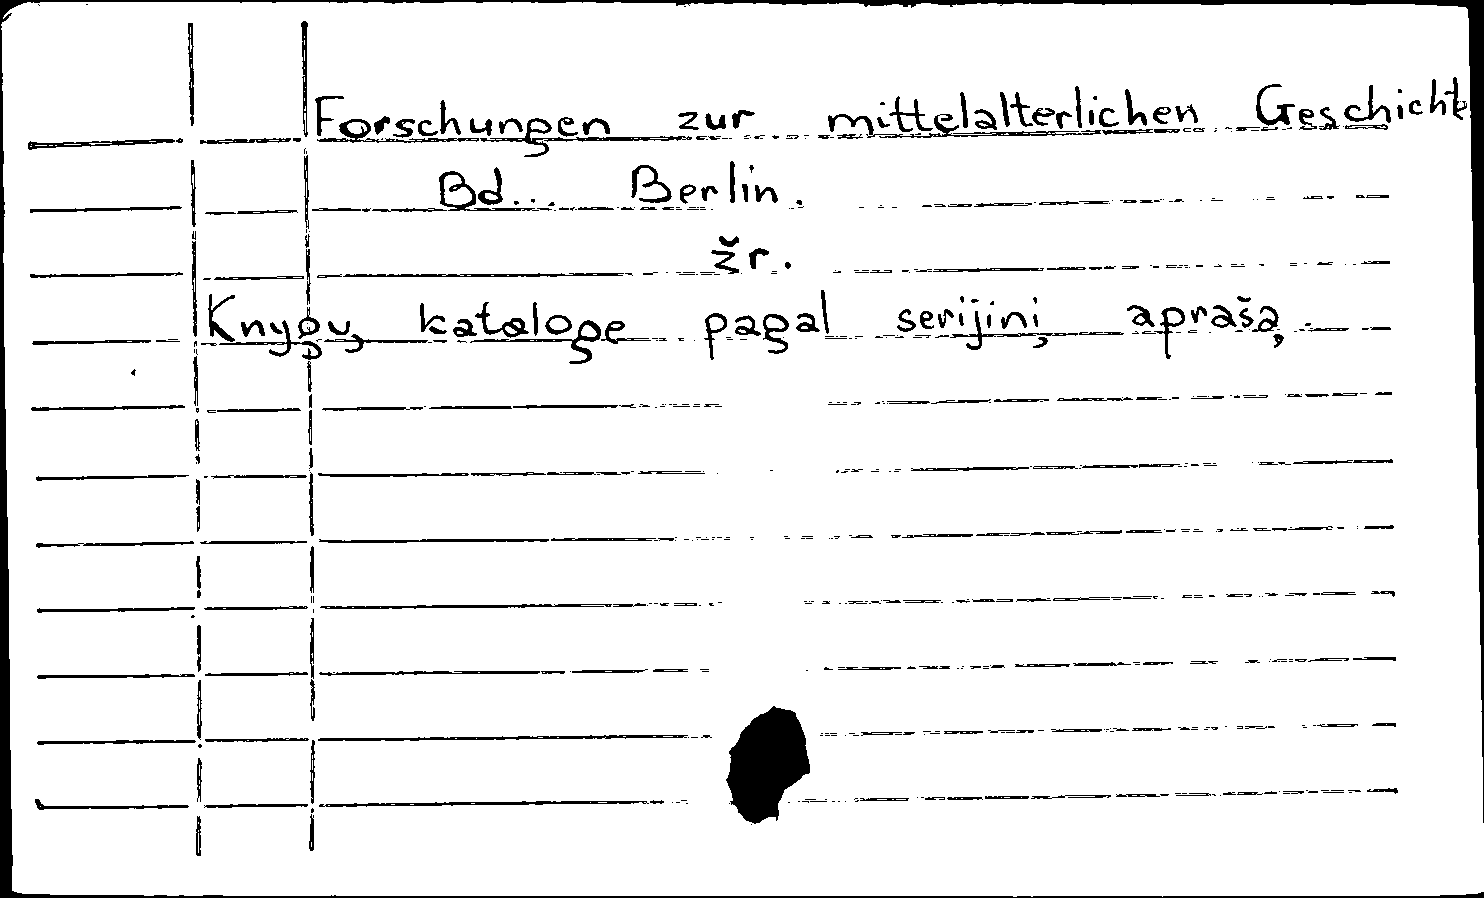 Forschungen zur mittelalterlichen Geschichte
Bd... Berlin.
žr.
Knygų kataloge pagal serijinį aprašą.